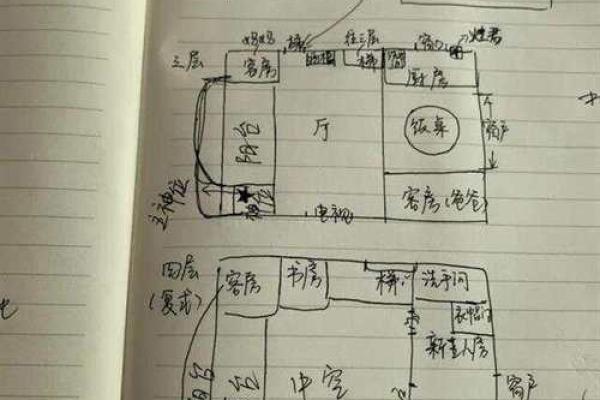 妈妈 梯 往三层 窗户 灶君
三层 客房 梯 厨房
阳台 厅 饭桌 窗户
主神位 神位 电视 客房(爸爸)
四层 客房 书房 梯 洗手间
(复式) 衣帽间
新主人房
阳台 中空 窗户